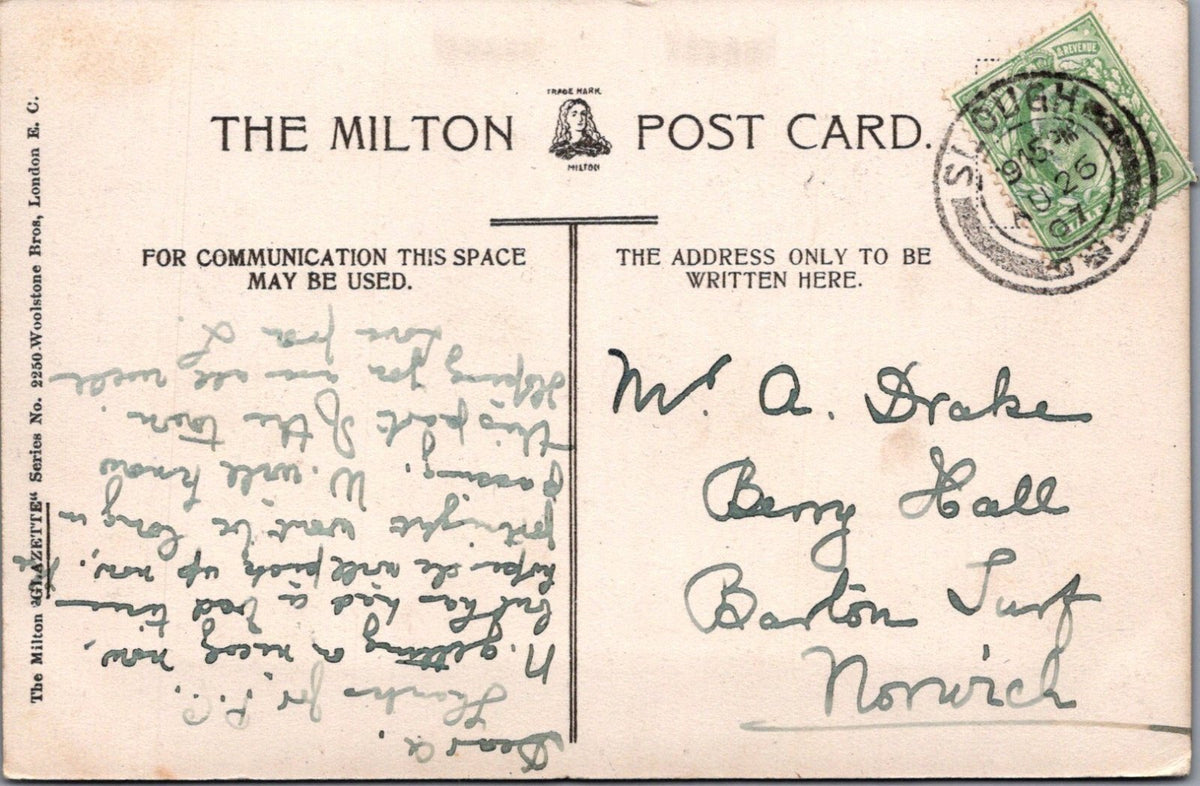 THE MILTON POST CARD.
TRADE MARK
MILTON
FOR COMMUNICATION THIS SPACE
MAY BE USED.
THE ADDRESS ONLY TO BE
WRITTEN HERE.
The Milton "GLAZETTE" Series No. 2250 Woolstone Bros, London E. C.
& REVENUE
SLOUGH
26
07
Dear A.
Thanks for P.C.
N. getting on nicely now,
but has had a bad time
hope she will pick up now.
fortnight won't be long in
passing. W. will know
this part of the town.
Hoping you are all well
Love from L.
Mr. A. Drake
Berry Hall
Barton Turf
Norwich